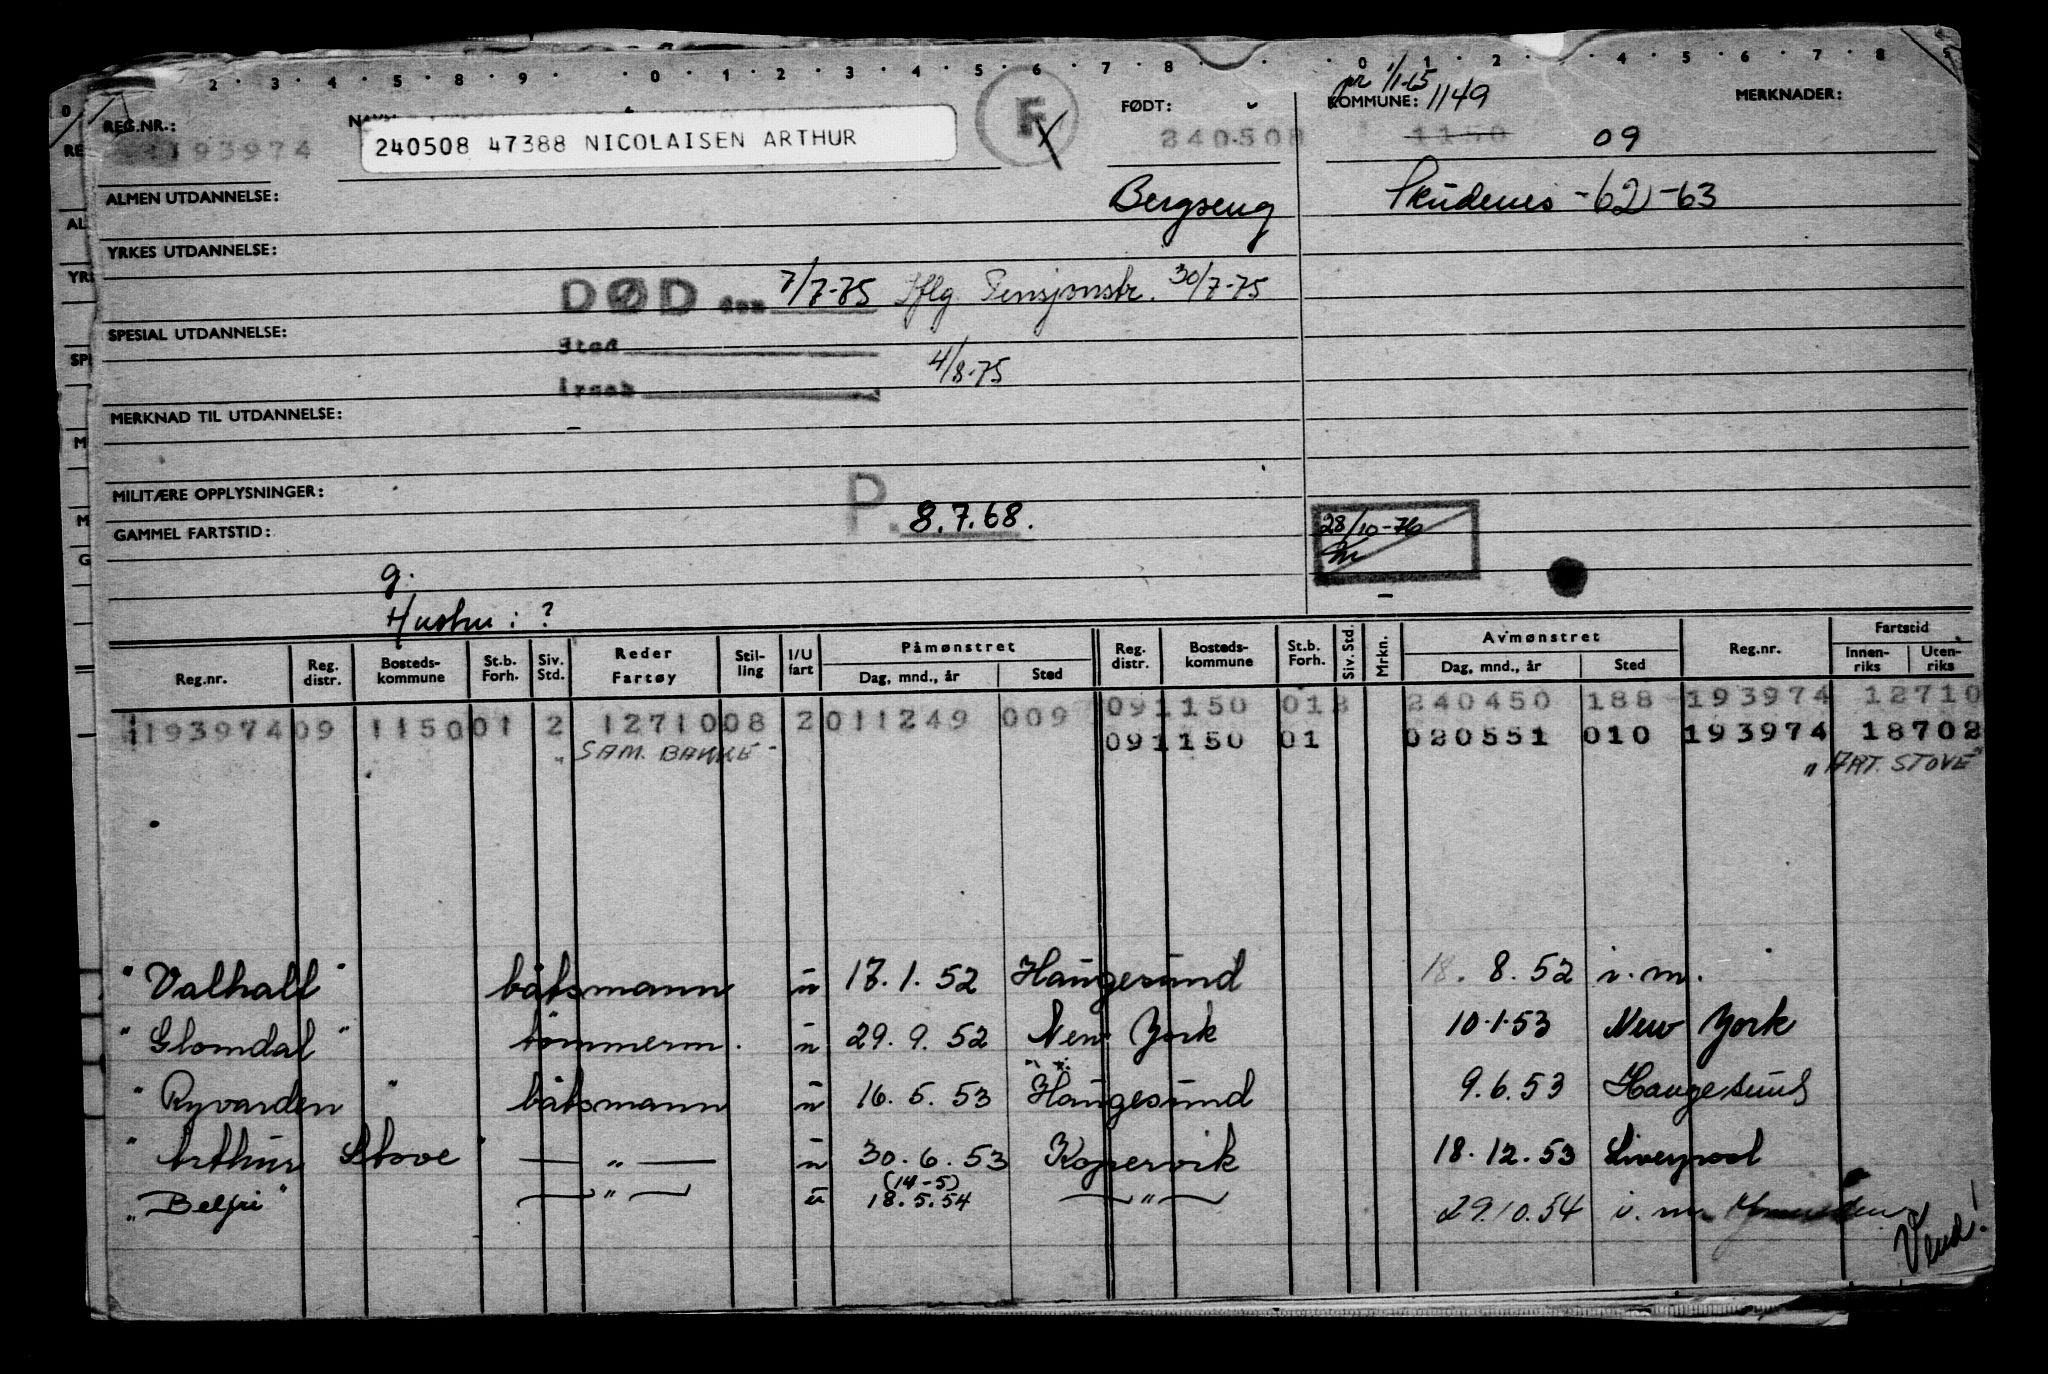 2 · 3 · 4 · 5 · 8 · 9 · · 0 · 1 · 2 · 3 · 4 · 5 · 6 · 7 · 8 · · 0 · 1 · 2 · 3 · 4 · 5 · 6 · 7 · 8 ·
REG.NR.: FØDT: pr 1/1-65 KOMMUNE: 1149 MERKNADER:
193974 240508 47388 NICOLAISEN ARTHUR F 240508 1150 09
ALMEN UTDANNELSE: Bergseng Skudenes -62-63
YRKES UTDANNELSE:
DØD den 7/7-75 Iflg Pensjonstr. 30/7-75
SPESIAL UTDANNELSE:
Sted
4/8-75
MERKNAD TIL UTDANNELSE:
MILITÆRE OPPLYSNINGER:
P. 8.7.68. 28/10-76
GAMMEL FARTSTID:
g.
Hustru: ?
Reg.nr. Reg. distr. Bosteds-kommune St.b. Forh. Siv. Std. Reder Fartøy Stil-ling I/U fart Påmønstret Dag, mnd., år Sted Reg. distr. Bosteds-kommune St.b. Forh. Siv. Std. Mrkn. Avmønstret Dag, mnd., år Sted Reg.nr. Fartstid Innen-riks Uten-riks
193974 09 1150 01 2 12710 08 2 011249 009 09 1150 01 240450 188 193974 12710
09 1150 01 020551 010 193974 18702
"SAM. BAKKE" "ART. STOVE"
"Valhall" båtsmann u 17.1.52 Haugesund 18.8.52 i.m.
"Glomdal" tømmerm. u 29.9.52 New York 10.1.53 New York
"Ryvarden" båtsmann u 16.5.53 Haugesund 9.6.53 Haugesund
"Arthur Stove" — " — u 30.6.53 Kopervik 18.12.53 Liverpool
"Belfri" — " — u (14-5) 18.5.54 — " — 29.10.54 i.m.
Vend!